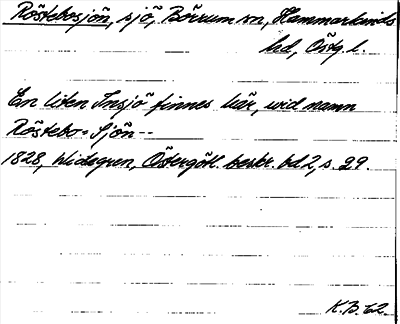 Röstebosjön, sjö, Börrum sn, Hammarkinds
hd, Östg. l.
En liten Insjö finnes här, vid namn
Röstebo-Sjön--
1828, Widegren, Östergötl. beskr. bd 2, s. 29.
K.B. 62